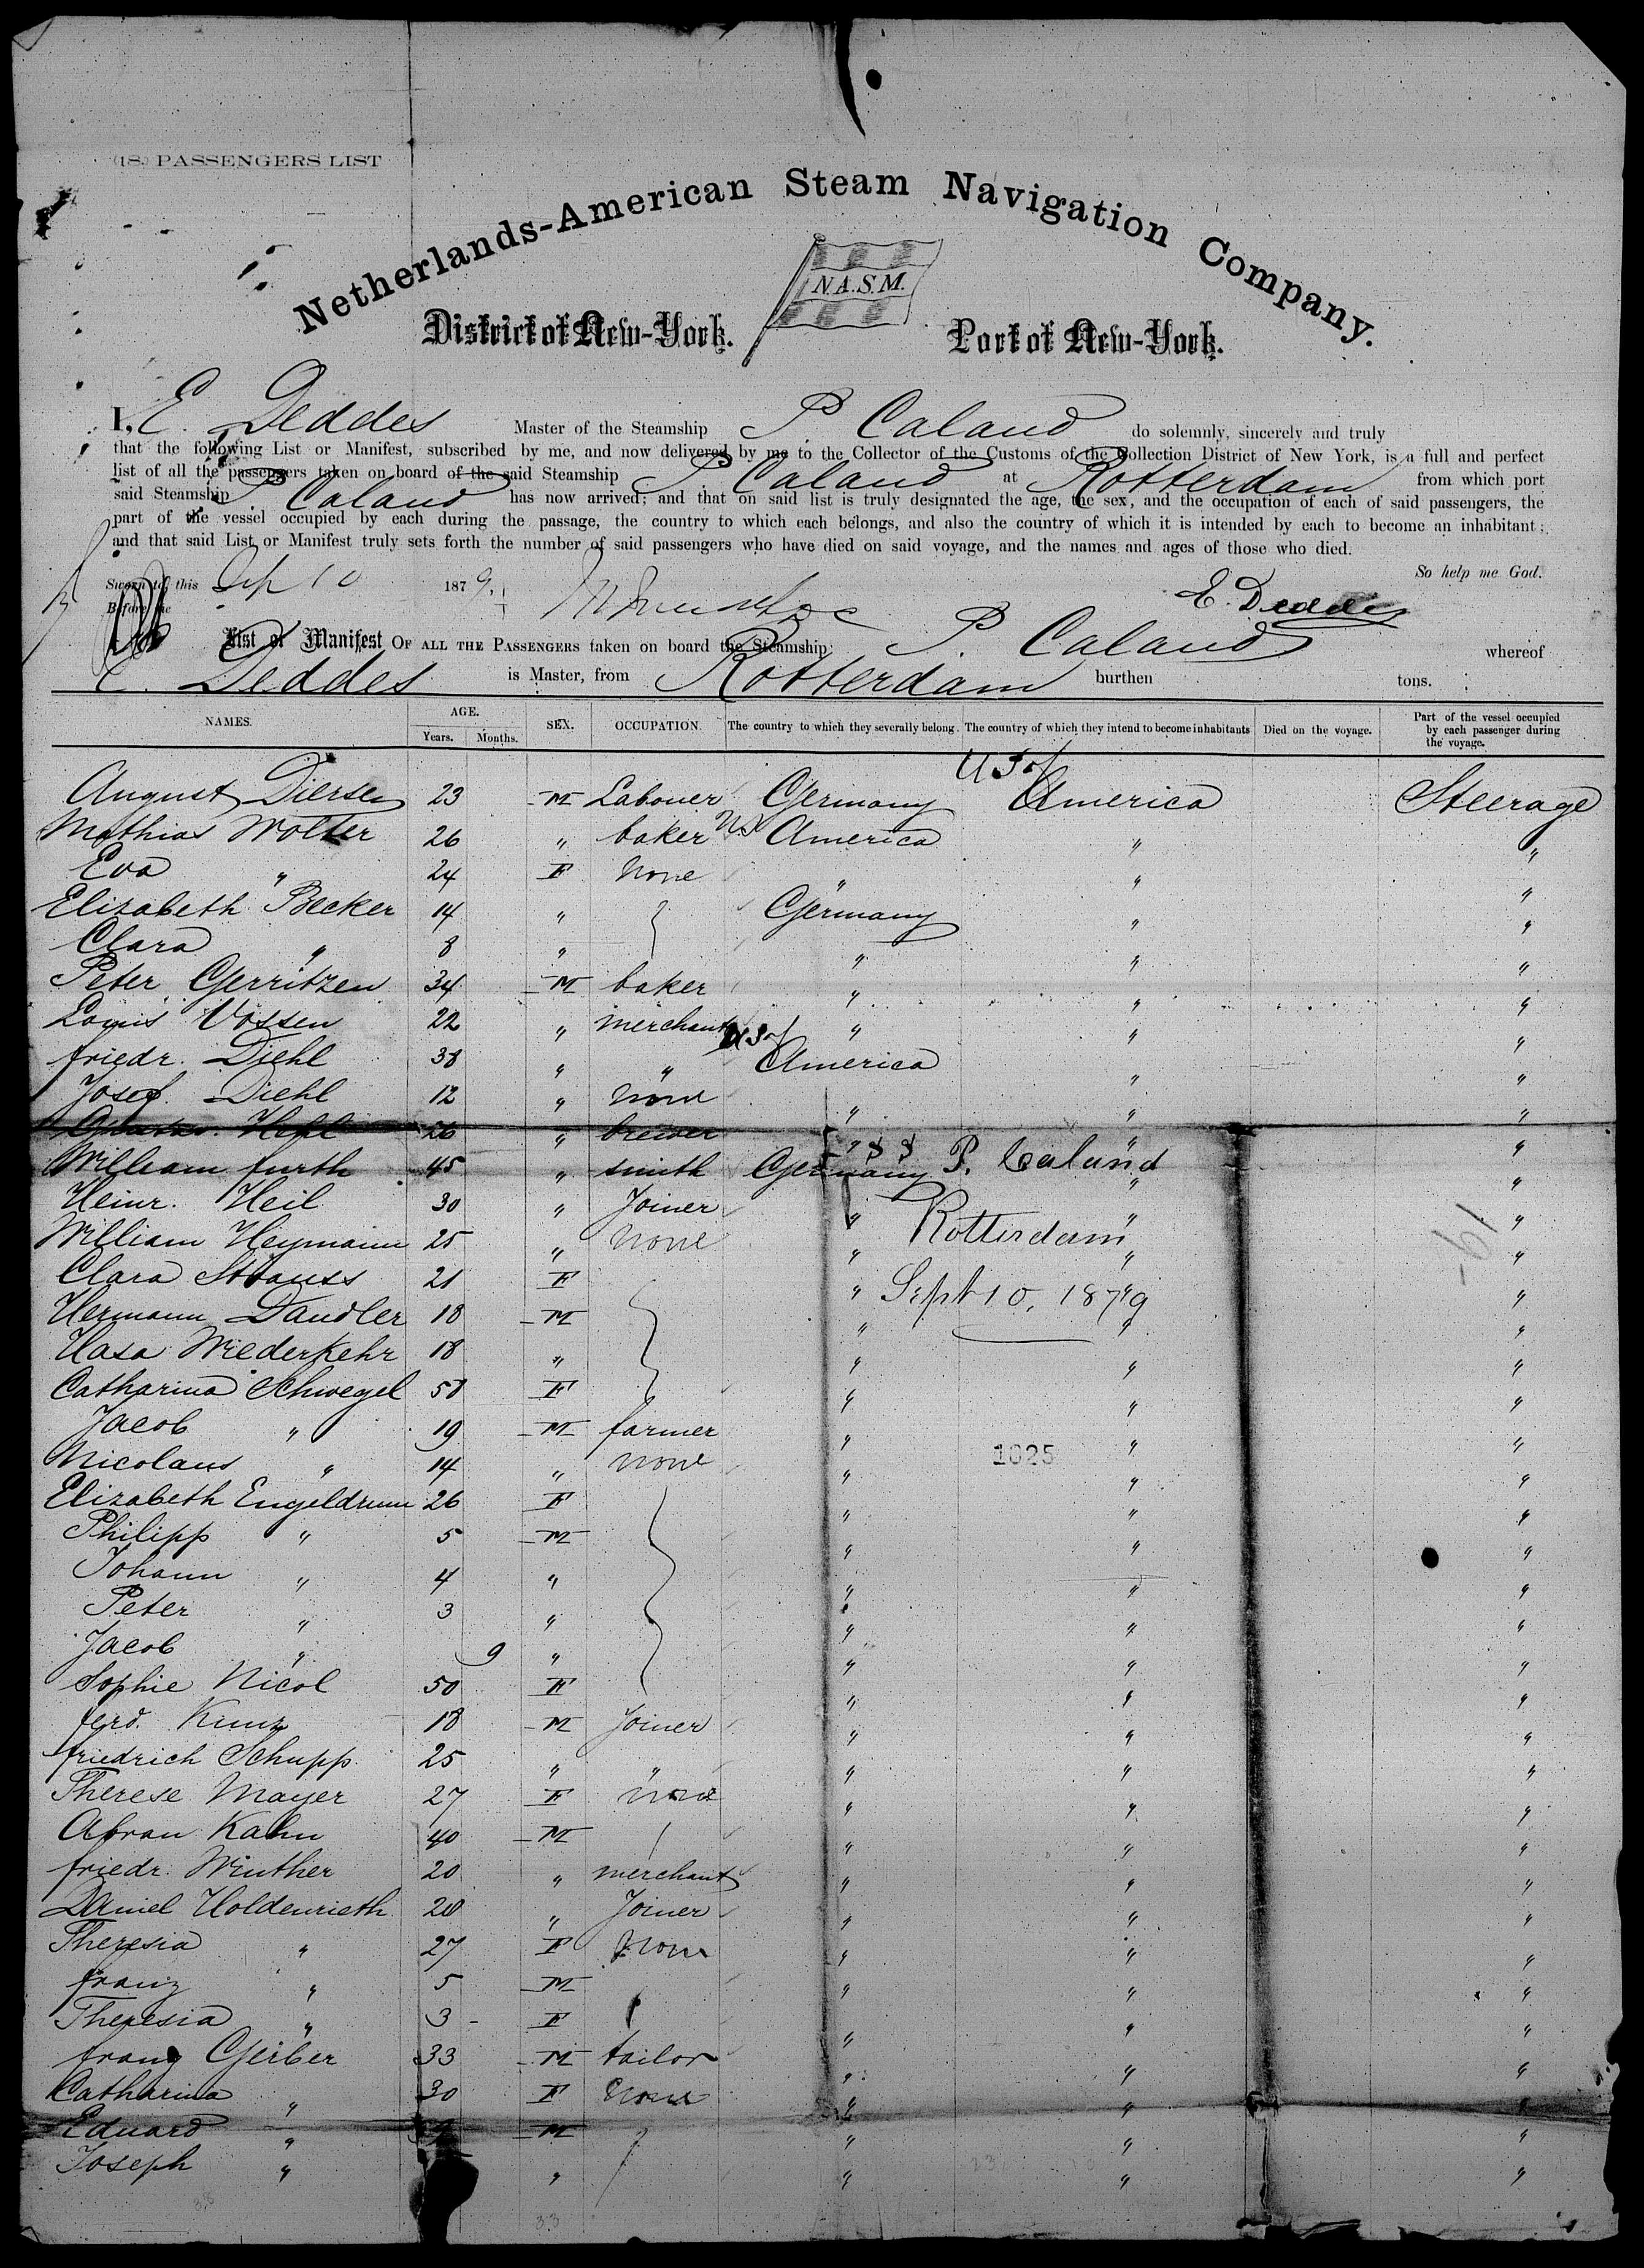 (18.) PASSENGERS LIST
Netherlands-American Steam Navigation Company.
N.A.S.M.
District of New-York. Port of New-York.
I, E. Deddes Master of the Steamship P. Caland do solemnly, sincerely and truly
that the following List or Manifest, subscribed by me, and now delivered by me to the Collector of the Customs of the Collection District of New York, is a full and perfect
list of all the passengers taken on board of the said Steamship P. Caland at Rotterdam from which port
said Steamship P. Caland has now arrived; and that on said list is truly designated the age, the sex, and the occupation of each of said passengers, the
part of the vessel occupied by each during the passage, the country to which each belongs, and also the country of which it is intended by each to become an inhabitant;
and that said List or Manifest truly sets forth the number of said passengers who have died on said voyage, and the names and ages of those who died.
So help me God.
Sworn to this Sep 10 1879,
Before me
E. Deddes
List or Manifest OF ALL THE PASSENGERS taken on board the Steamship P. Caland whereof
E. Deddes is Master, from Rotterdam burthen tons.
NAMES. AGE. Years. Months. SEX. OCCUPATION. The country to which they severally belong. The country of which they intend to become inhabitants Died on the voyage. Part of the vessel occupied by each passenger during the voyage.
August Diersen 23 M Labouer Germany US of America Steerage
Mathias Wolter 26 " baker US America " "
Eva " 24 F None " " "
Elizabeth Becker 14 " Germany " "
Clara " 8 " " " "
Peter Gerritzen 34 M baker " " "
Louis Vossen 22 " merchant " " "
friedr. Diehl 38 " " US of America " "
Josef. Diehl 12 " None " " "
26 " brewer " " "
William furth 45 " smith Germany " "
SS P. Caland
Heinr. Heil 30 " Joiner " " "
Rotterdam
William Heymann 25 " None " " "
Clara Strauss 21 F " " "
Sept 10, 1879
Hermann Dandler 18 M " " "
Hasa Wiederkehr 18 " " " "
Catharina Schwegel 58 F " " "
Jacob " 19 M farmer " " "
1025
Nicolaus " 14 " None " " "
Elizabeth Engeldrum 26 F " " "
Philipp " 5 M " " "
Johann " 4 " " " "
Peter " 3 " " " "
Jacob " 9 " " " "
Sophie Nicol 50 F " " "
ferd. Kunz 18 M Joiner " " "
friedrich Schupp 25 " " " " "
Therese Mayer 27 F None " " "
Abran Kahn 40 M " " "
friedr. Winther 20 " merchant " " "
Daniel Holdenrieth 28 " Joiner " " "
Theresia " 27 F None " " "
franz " 5 M " " "
Theresia " 3 F " " "
franz Gerber 33 M tailor " " "
Catharina " 30 F None " " "
Eduard " M " " "
Joseph " " " " "
38 33